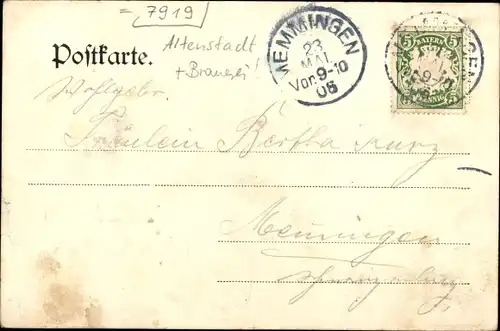 = 7919
Altenstadt
+ Brauerei!
Postkarte.
MEMMINGEN
23
MAI.
Vor. 9-10
06
BAYERN
5 5
PFENNIG
Wohlgeb.
Fräulein Bertha Kurz
Memmingen